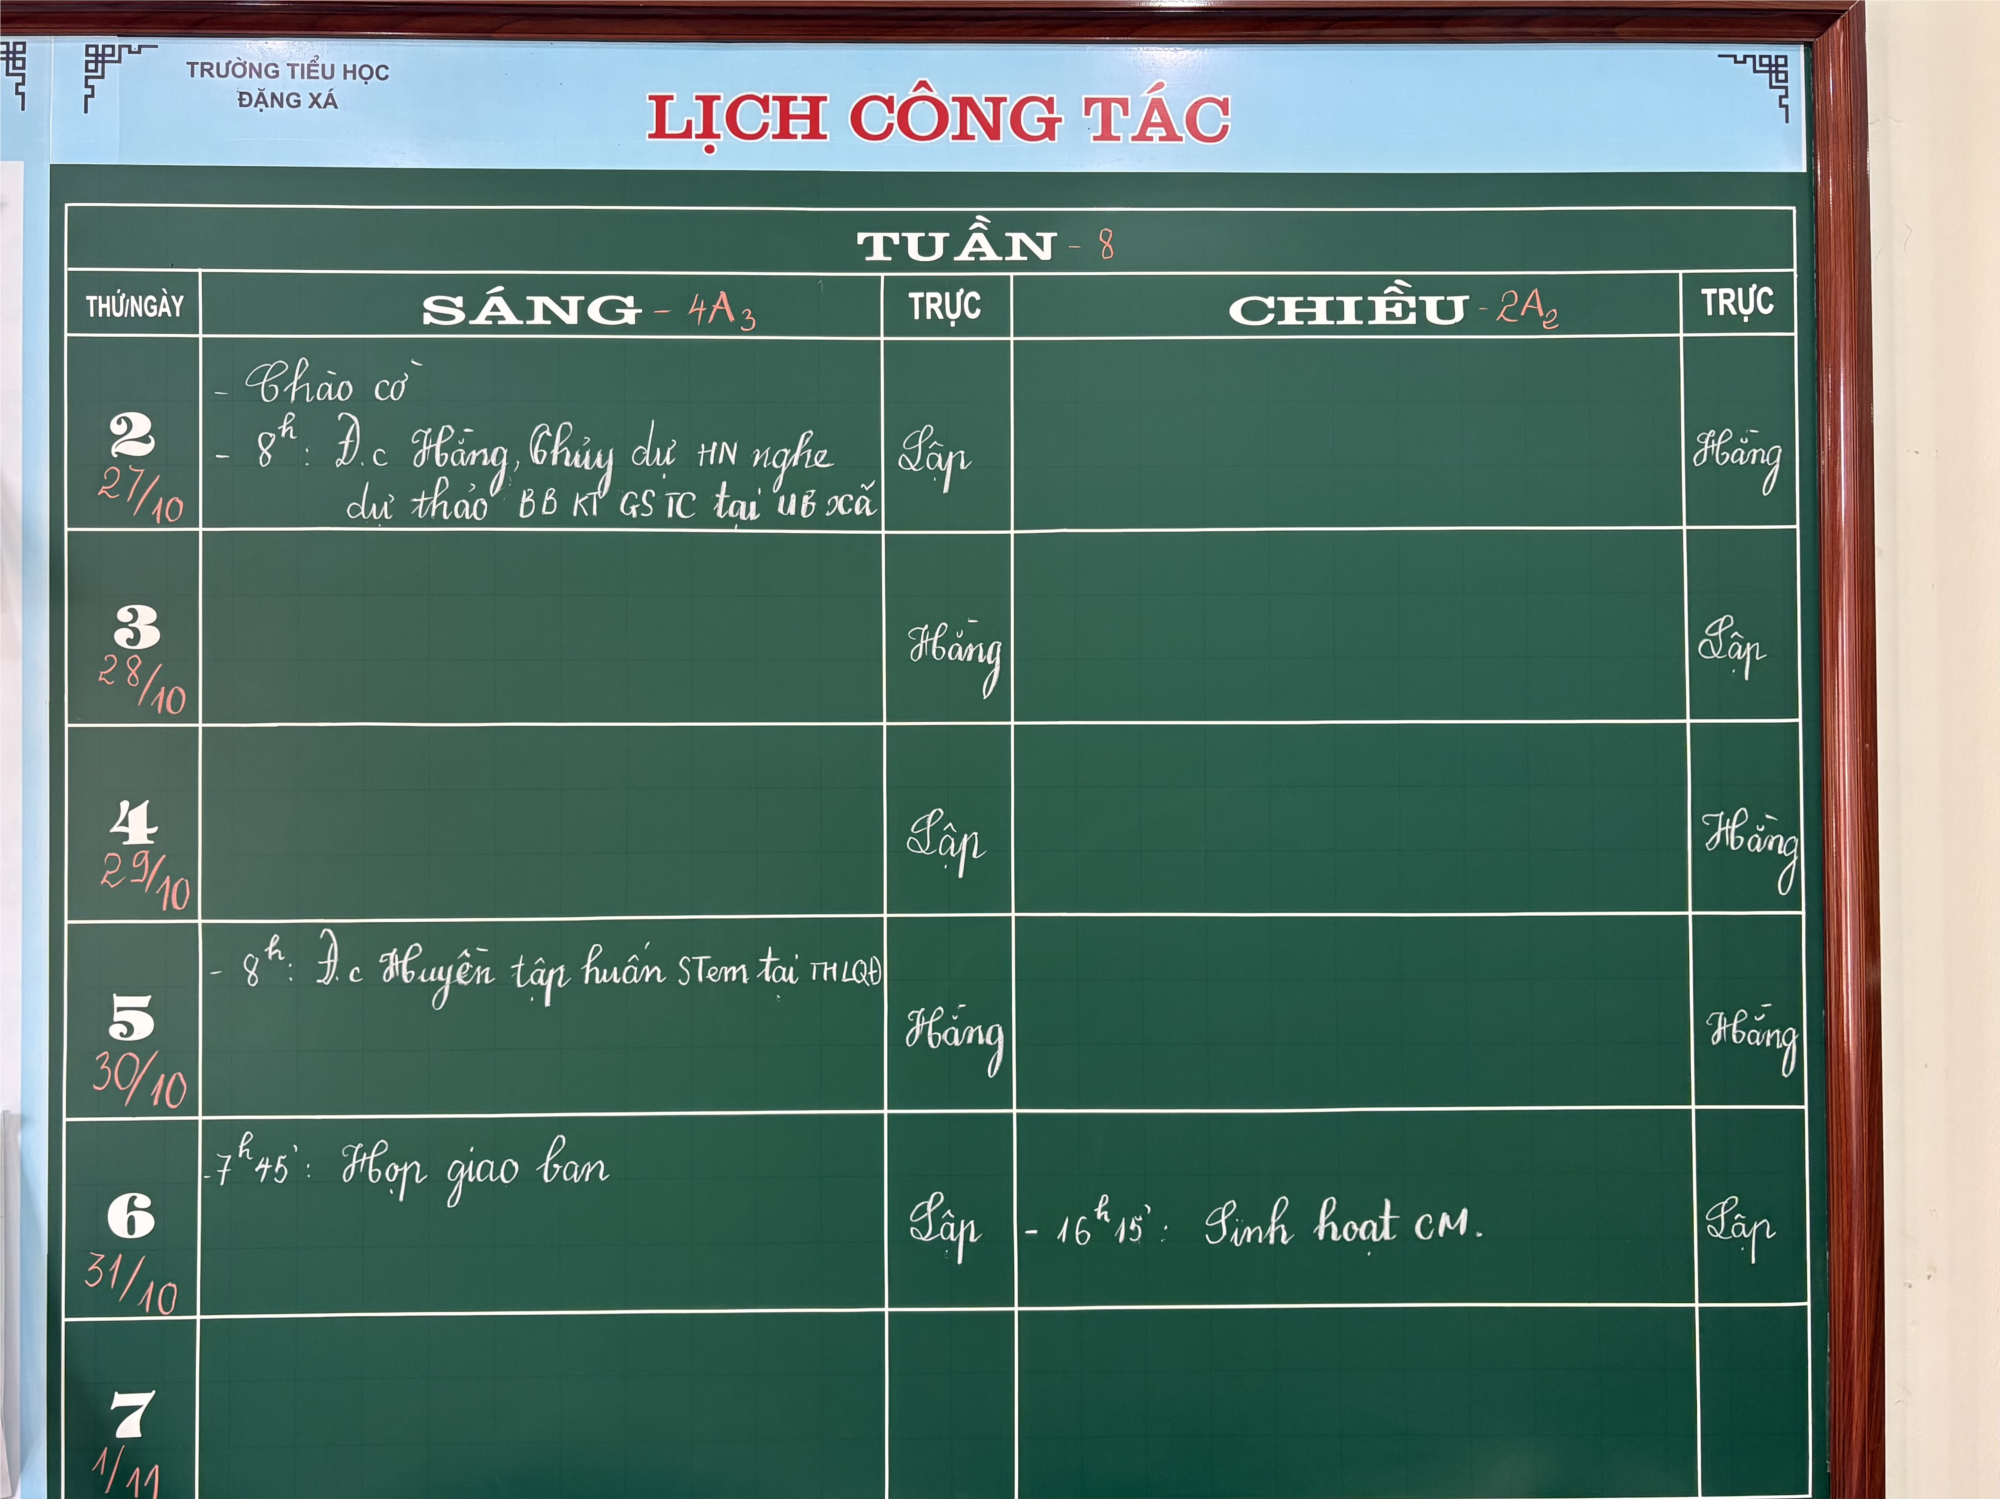 TRƯỜNG TIỂU HỌC
ĐẶNG XÁ
LỊCH CÔNG TÁC
TUẦN - 8
THỨ/NGÀY
SÁNG - 4A3
TRỰC
CHIỀU - 2A2
TRỰC
2
27/10
- Chào cờ
- 8h: Đ.c Hằng, Thủy dự HN nghe
dự thảo BB KT GS TC tại UB xã
Lập
Hằng
3
28/10
Hằng
Lập
4
29/10
Lập
Hằng
5
30/10
- 8h: Đ.c Huyền tập huấn STem tại THLQĐ
Hằng
Hằng
6
31/10
- 7h45': Họp giao ban
Lập
- 16h15': Sinh hoạt CM.
Lập
7
1/11